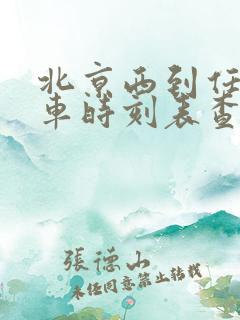 北京西到任
車時刻表查
張德山
未经同意禁止转载